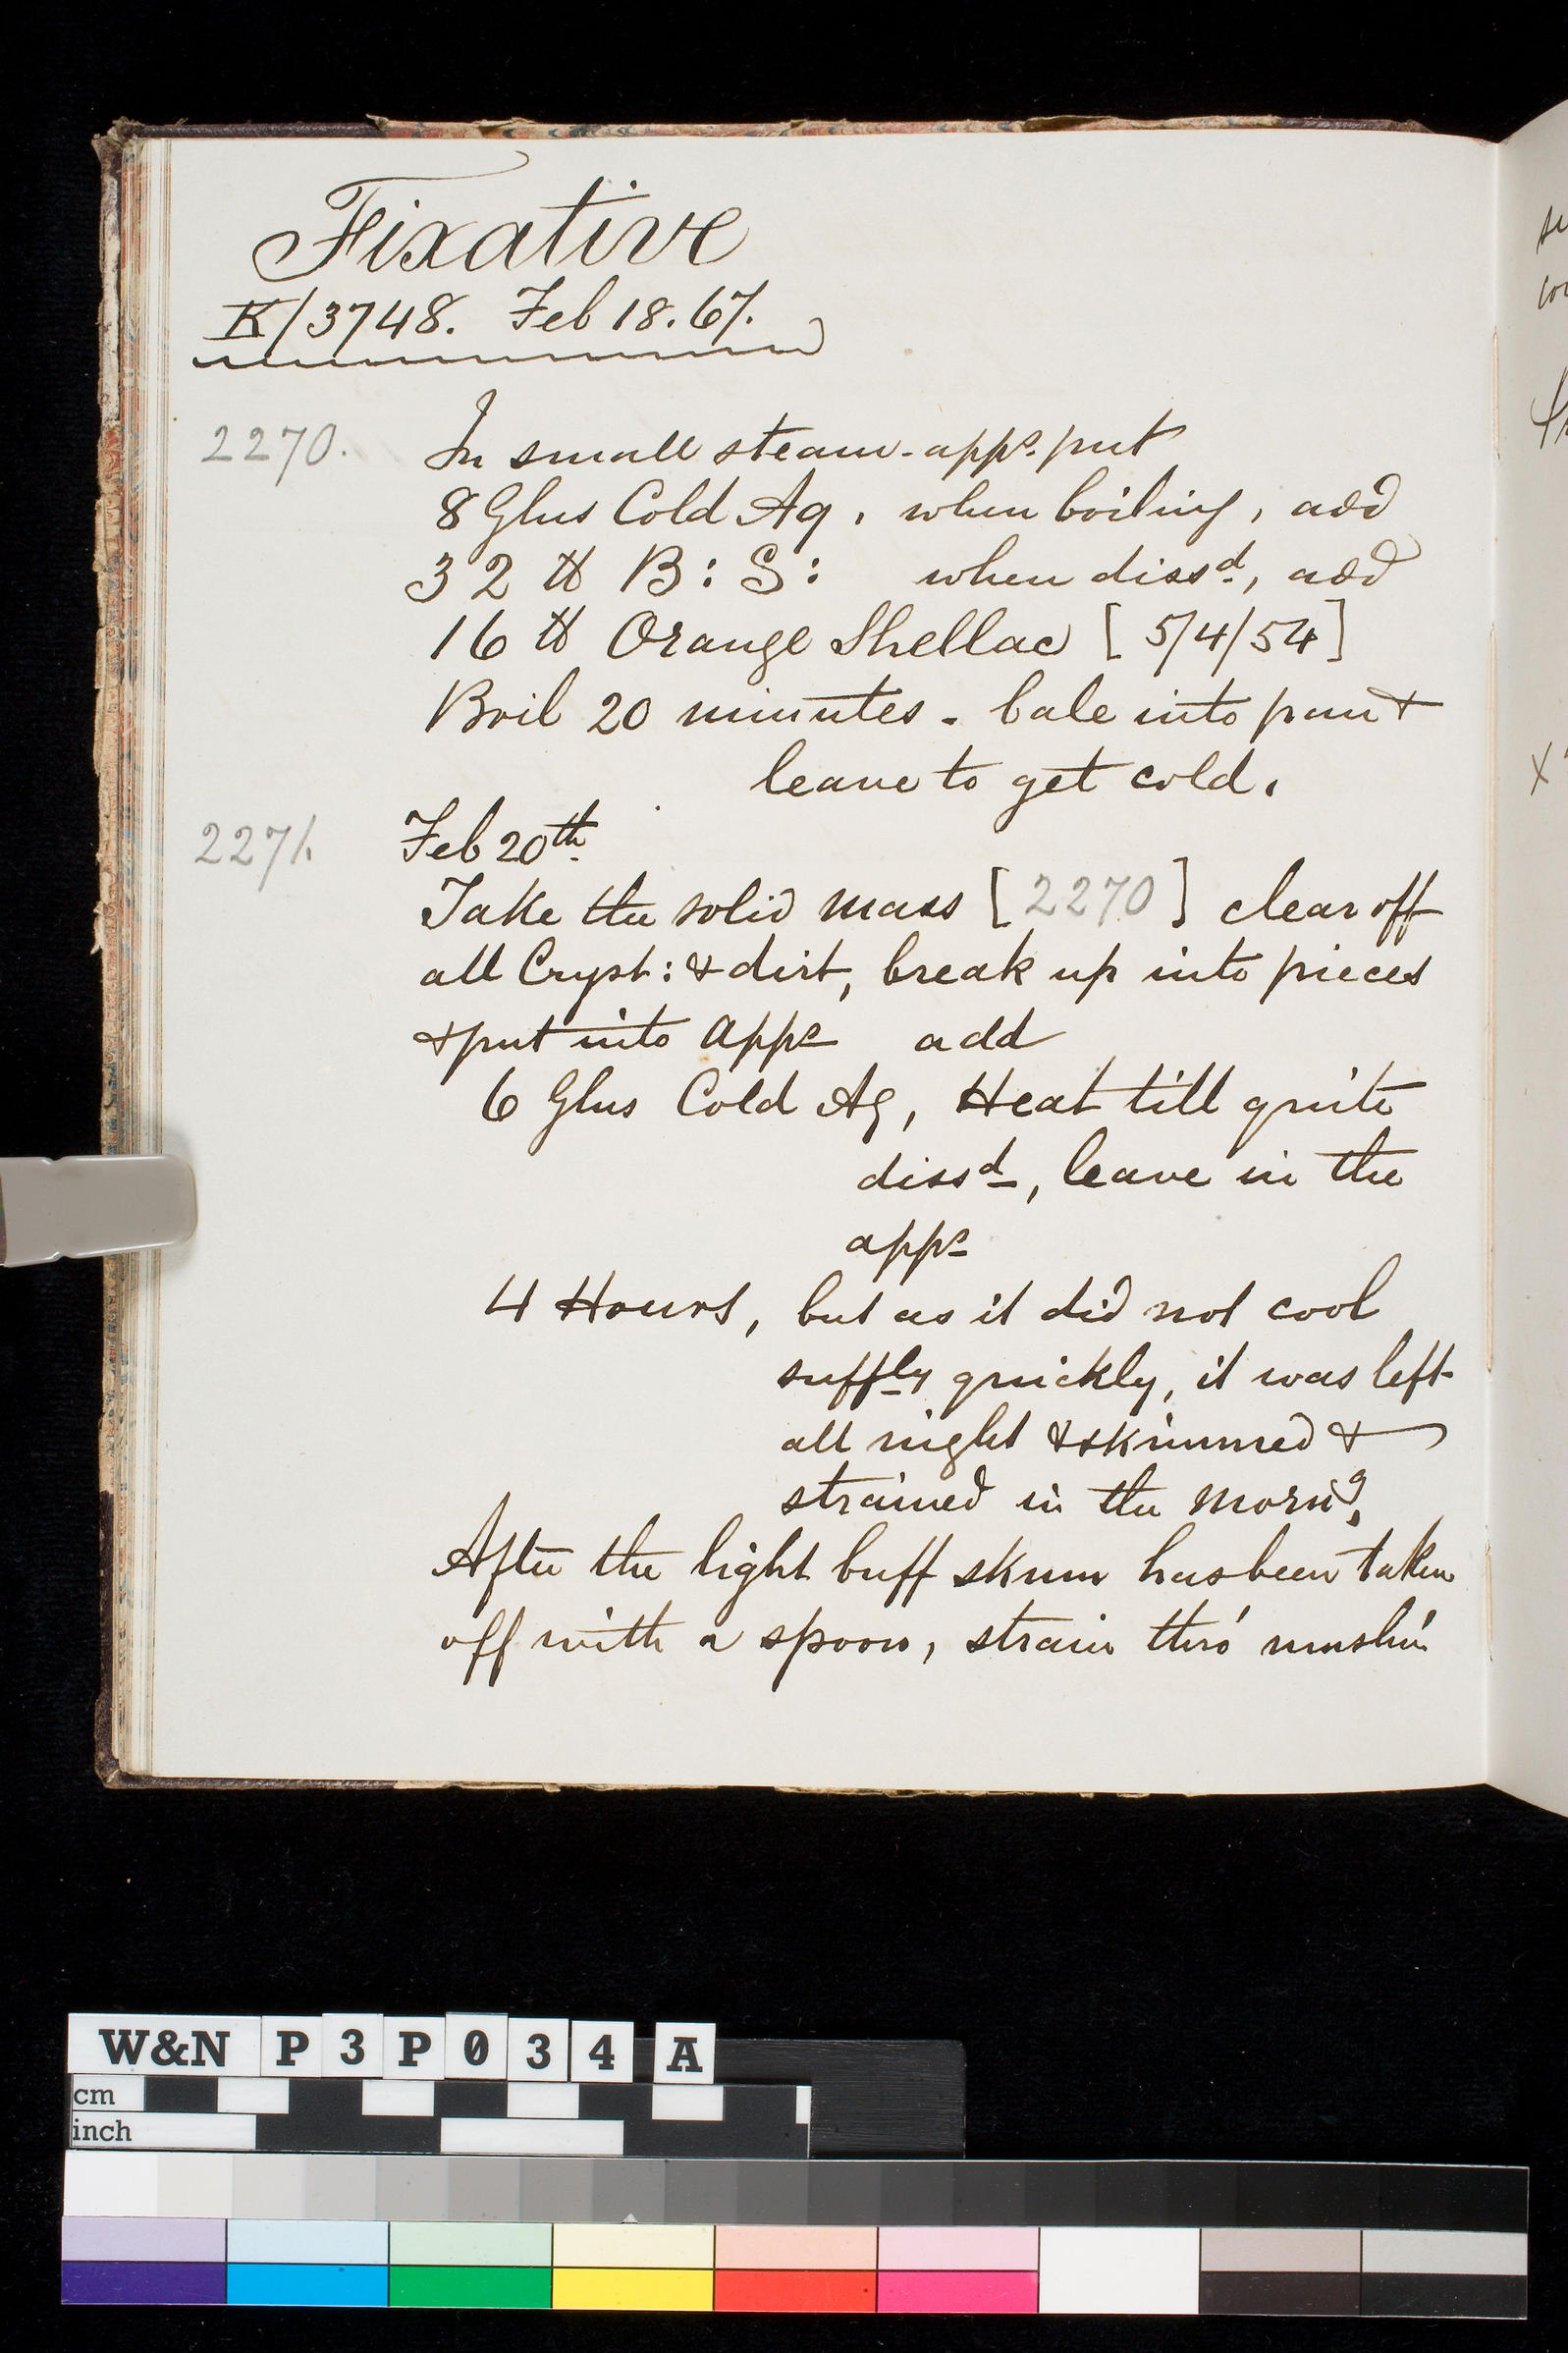 Fixative
K/3748. Feb 18. 67.
2270. In small steam-apps. put
8 Glns Cold Aq. when boiling, add
32 lb B: S: when dissd, add
16 lb Orange Shellac [5/4/54]
Boil 20 minutes - bale into pan &
leave to get cold.
2271. Feb 20th
Take the solid mass [2270] clear off
all Cryst: & dirt, break up into pieces
& put into apps add
6 Glns Cold Aq, Heat till quite
dissd, leave in the
apps
4 Hours, but as it did not cool
suffly quickly, it was left
all night & skimmed &
strained in the morng.
After the light buff skum has been taken
off with a spoon, strain thro' muslin
W&N P3P034A
cm
inch